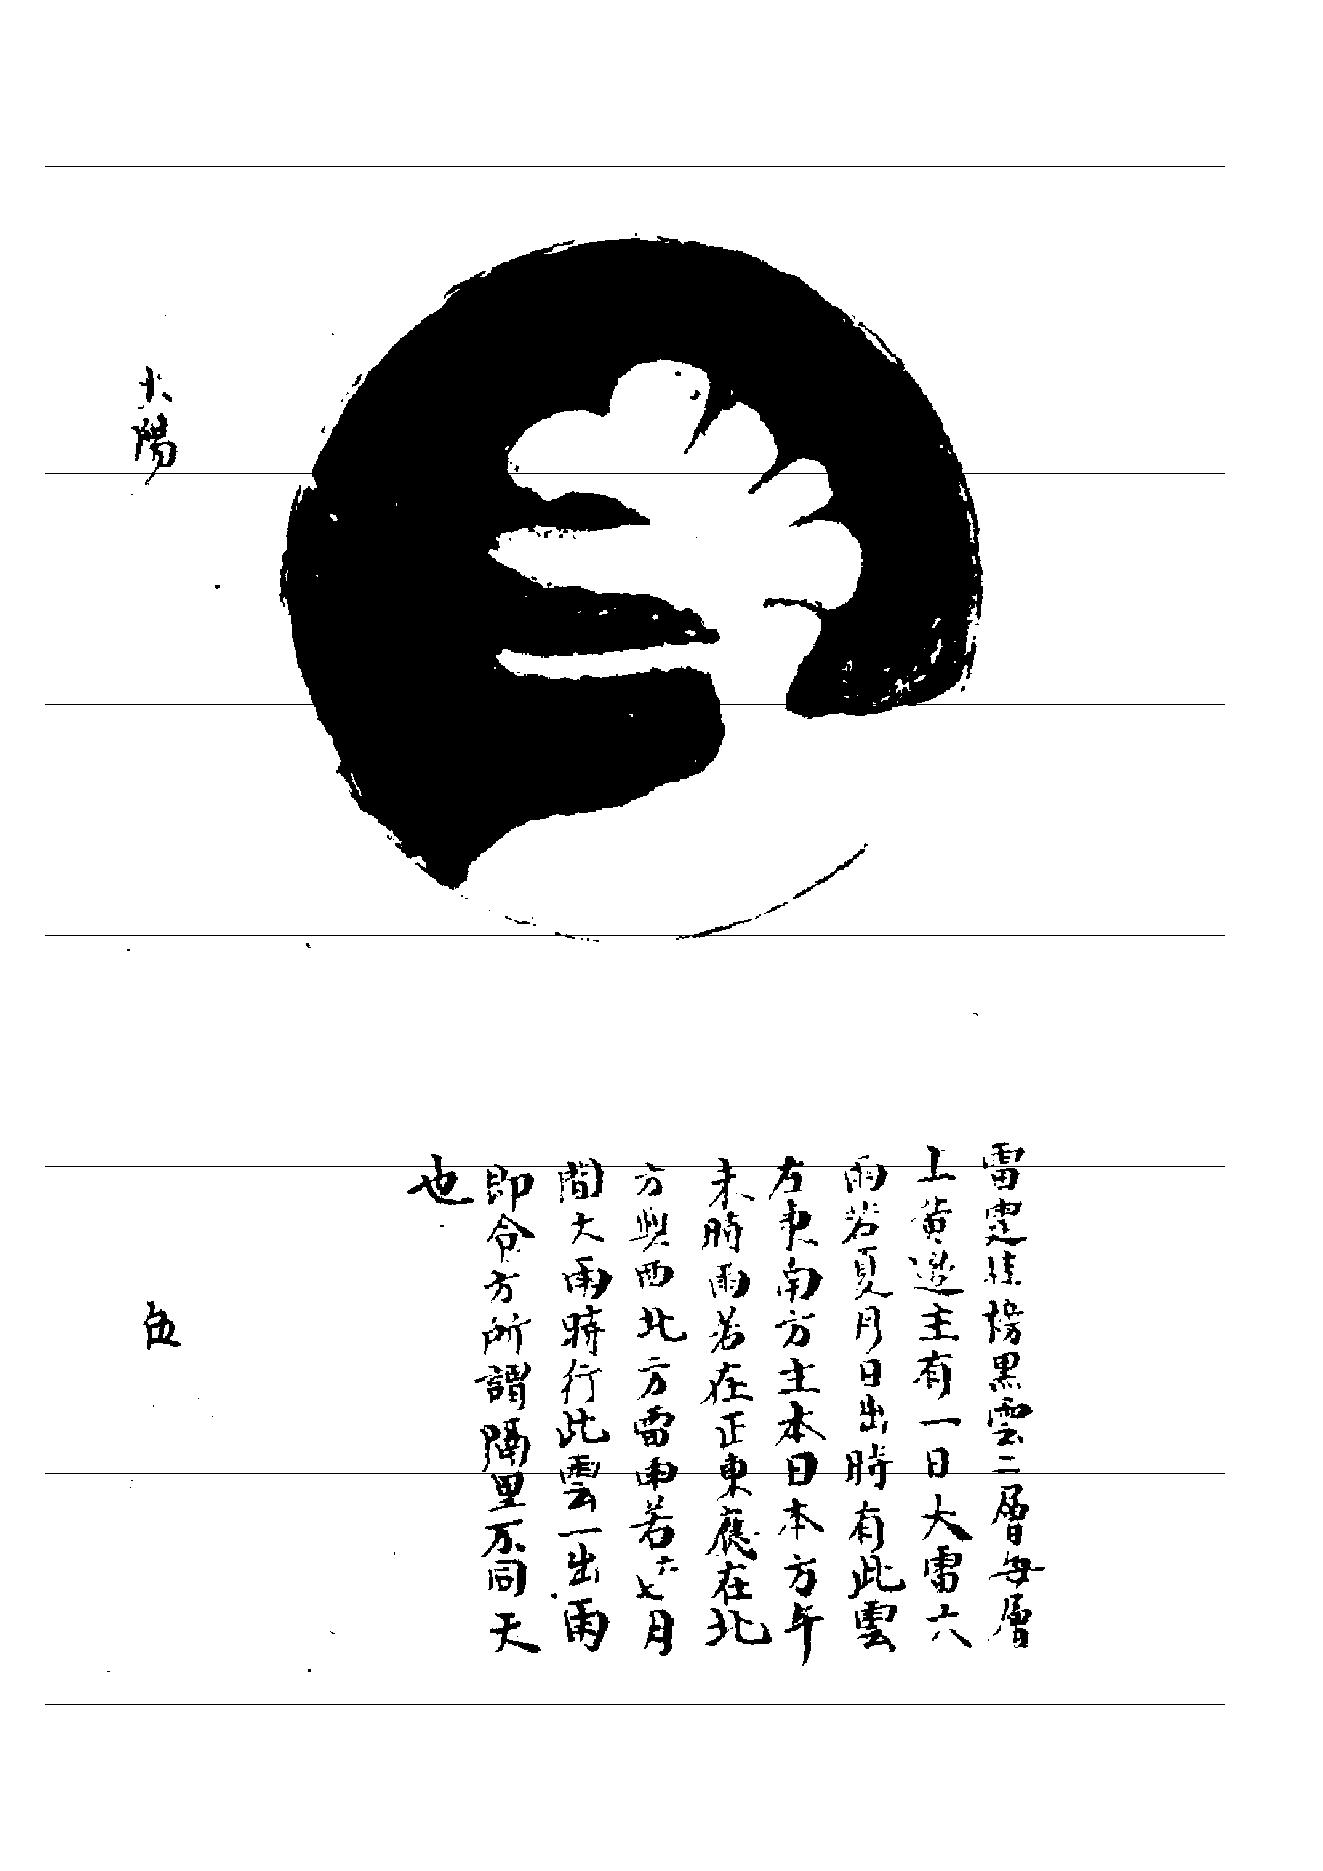 雷霆 黑雲二層每層
上黃邊主有一日大雷大
雨若夏月日出時有此雲
左東南方主本日本方午
未時雨若在正東應在北
方與西北方雷雨若六七月
間大雨時行此雲一出雨
即令方所謂隔里不同天
也
太陽
伍